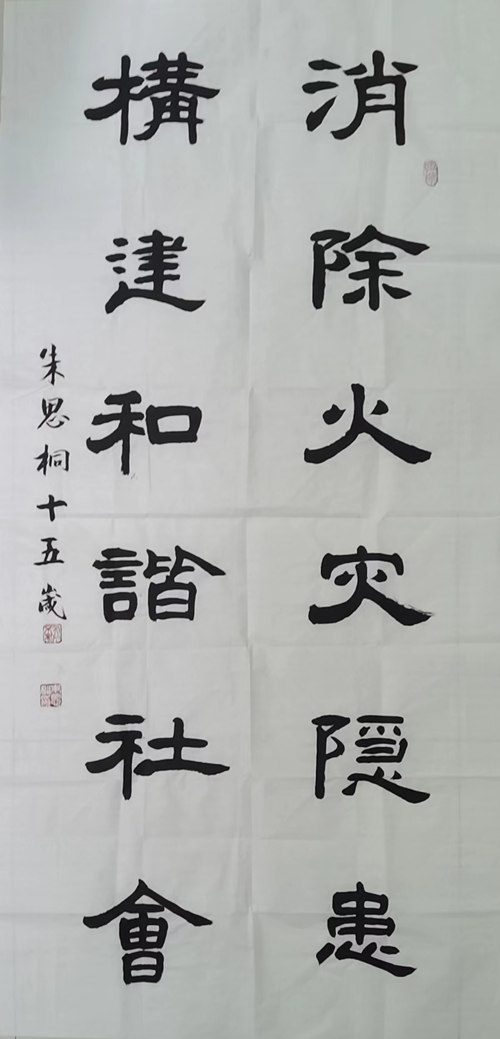 消除火灾隐患
構建和諧社會
朱思桐十五歲